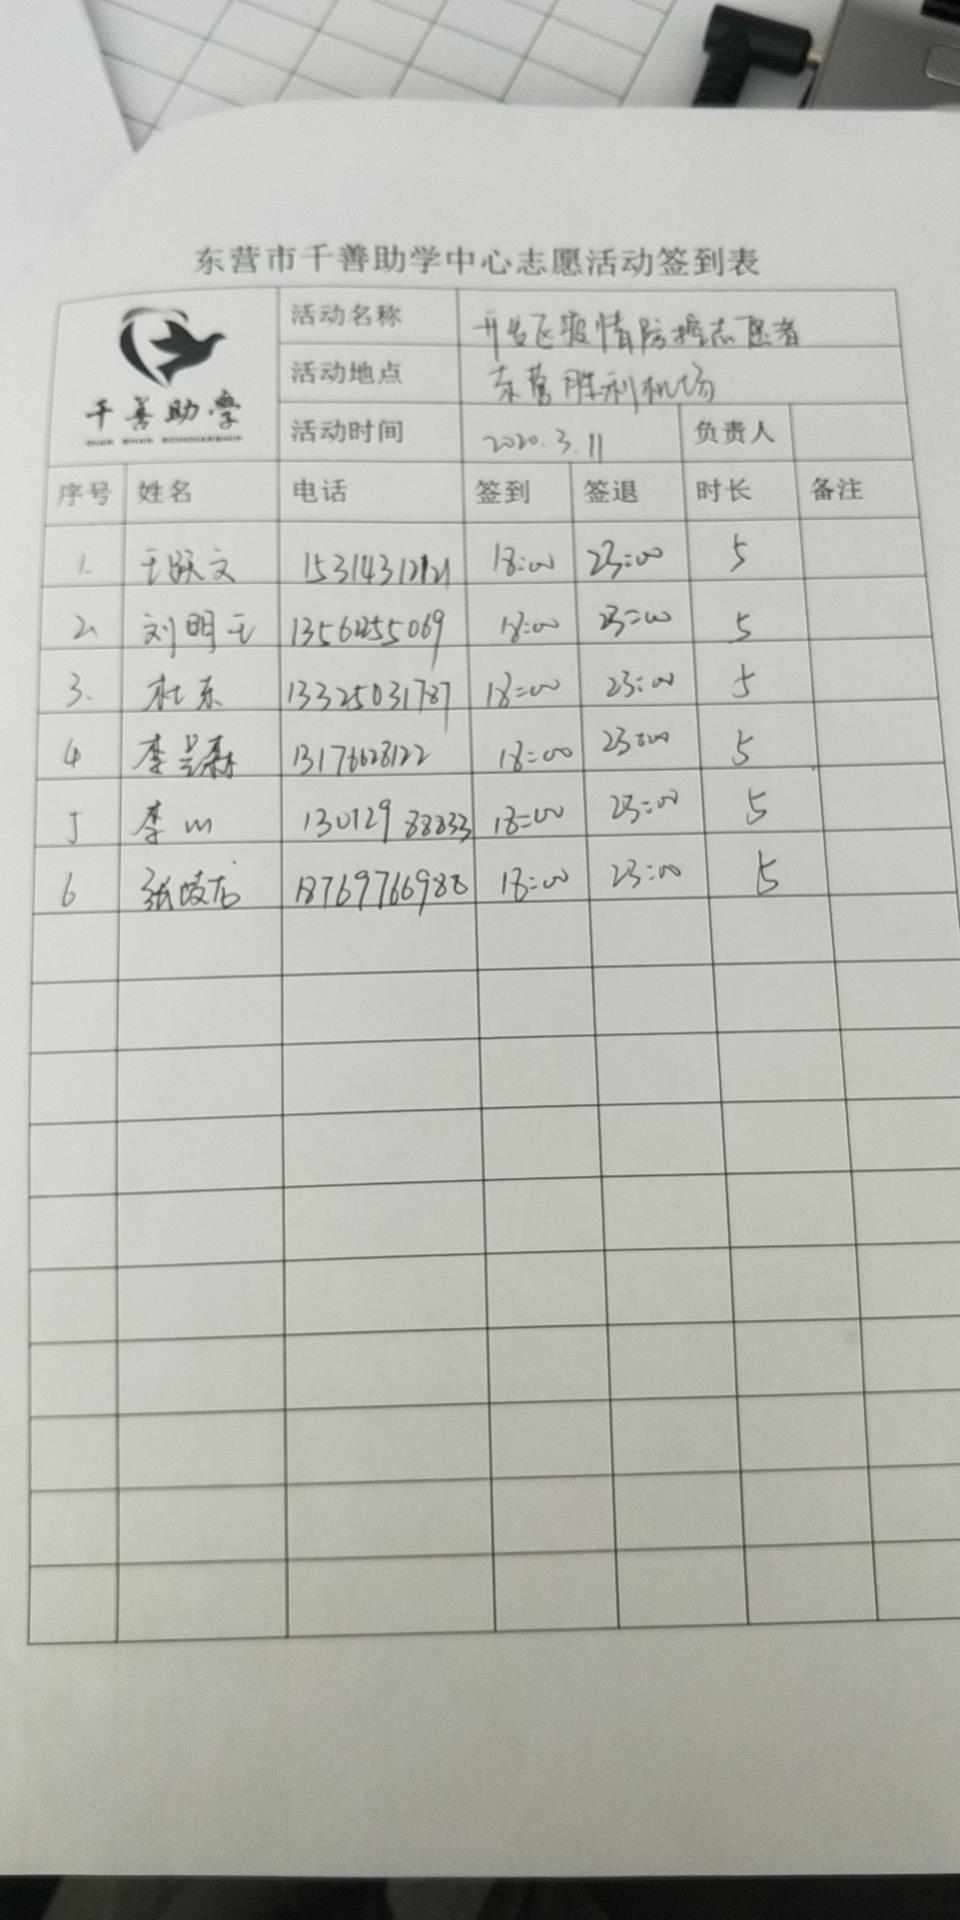 东营市千善助学中心志愿活动签到表
千善助学
活动名称 开发区疫情防控志愿者
活动地点 东营胜利机场
活动时间 2020.3.11 负责人
序号 姓名 电话 签到 签退 时长 备注
1. 王跃文 15314312121 18:00 23:00 5
2. 刘明 18:00 23:00 5
3. 杜东 13325031787 18:00 23:00 5
4 李 13176628122 18:00 23:00 5
5 李 13012988833 18:00 23:00 5
6 张 18769766988 18:00 23:00 5